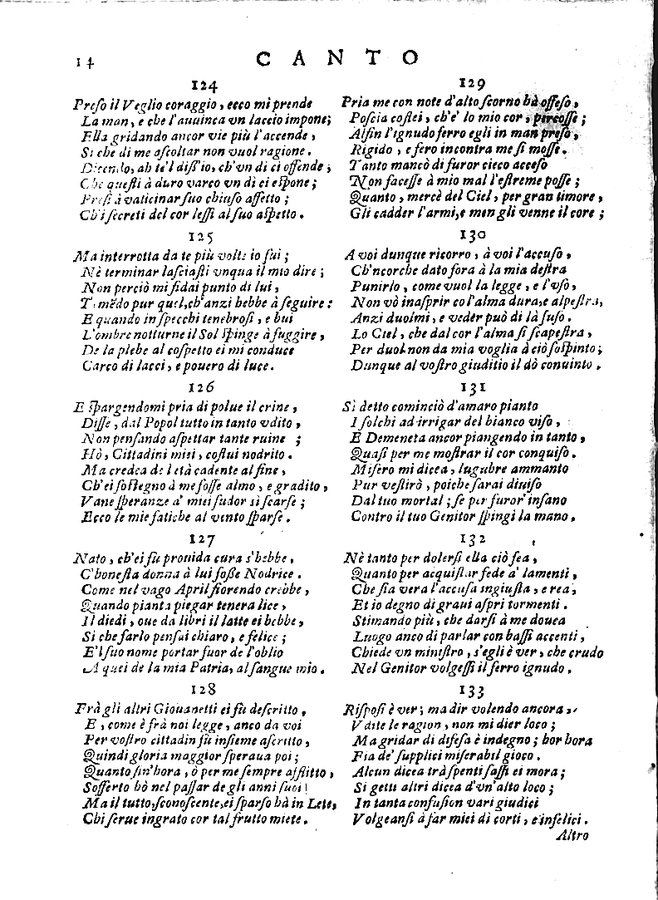 14
CANTO
124
Preſo il Veglio coraggio, ecco mi prende
La man, e che l'auuinca vn laccio impone;
Ella gridando ancor vie più l'accende,
Si che di me aſcoltar non vuol ragione.
Dicendo, ah te'l diſſ'io, ch'vn dì ci offende;
Che queſti à duro varco vn dì ci eſpone;
Preſi à vaticinar ſuo chiuſo affetto;
Ch'i ſecreti del cor leſſi al ſuo aſpetto.
125
Ma interrotta da te più volte io fui;
Nè terminar laſciaſti vnqua il mio dire;
Non perciò mi fidai punto di lui,
Timēdo pur quel, ch'anzi hebbe à ſeguire:
E quando in ſpecchi tenebroſi, e bui
L'ombre notturne il Sol ſpinge à fuggire,
De la plebe al coſpetto ei mi conduce
Carco di lacci, e pouero di luce.
126
E ſpargendomi pria di polue il crine,
Diſſe, dal Popol tutto in tanto vdito,
Non penſando aſpettar tante ruine;
Hò, Cittadini miei, coſtui nodrito.
Ma credea de l'età cadente al fine,
Ch'ei ſoſtegno à me foſſe almo, e gradito,
Vane ſperanze a' miei ſudor sì ſcarſe;
Ecco le mie fatiche al vento ſparſe.
127
Nato, ch'ei fù prouida cura s'hebbe,
C'honeſta donna à lui foſſe Nodrice.
Come nel vago April fiorendo crebbe,
Quando pianta piegar tenera lice,
Il diedi, oue da libri il latte ei bebbe,
Si che farlo penſai chiaro, e felice;
E'l ſuo nome portar fuor de l'oblio
A quei de la mia Patria, al ſangue mio.
128
Frà gli altri Giouanetti ei fù deſcritto,
E, come è frà noi legge, anco da voi
Per voſtro cittadin fù inſieme aſcritto,
Quindi gloria maggior ſperaua poi;
Quanto ſin'hora, ò per me ſempre afflitto,
Sofferto hò nel paſſar de gli anni ſuoi!
Ma il tutto, ſconoſcente, ei ſparſo hà in Lete,
Chi ſerue ingrato cor tal frutto miete.
129
Pria me con note d'alto ſcorno hà offeſo,
Poſcia coſtei, ch'e' lo mio cor, percoſſe;
Alfin l'ignudo ferro egli in man preſo,
Rigido, e fero incontra me ſi moſſe.
Tanto mancò di furor cieco acceſo
Non faceſſe à mio mal l'eſtreme poſſe;
Quanto, mercè del Ciel, per gran timore,
Gli cadder l'armi, e men gli venne il core;
130
A voi dunque ricorro, à voi l'accuſo,
Ch'ncorche dato fora à la mia deſtra
Punirlo, come vuol la legge, e l'vſo,
Non vò inaſprir co l'alma dura, e alpeſtra,
Anzi duolmi, e veder può di là ſuſo.
Lo Ciel, che dal cor l'alma ſi ſcapeſtra,
Per duol non da mia voglia à ciò ſoſpinto;
Dunque al voſtro giuditio il dò conuinto.
131
Sì detto cominciò d'amaro pianto
I ſolchi ad irrigar del bianco viſo,
E Demeneta ancor piangendo in tanto,
Quaſi per me moſtrar il cor conquiſo.
Miſero mi dicea, lugubre ammanto
Pur veſtirò, poiche ſarai diuiſo
Dal tuo mortal; ſe per furor' inſano
Contro il tuo Genitor ſpingi la mano.
132
Nè tanto per dolerſi ella ciò fea,
Quanto per acquiſtar fede a' lamenti,
Che ſia vera l'accuſa ingiuſta, e rea,
Et io degno di graui aſpri tormenti.
Stimando più, che darſi à me douea
Luogo anco di parlar con baſſi accenti,
Chiede vn miniſtro, s'egli è ver, che crudo
Nel Genitor volgeſſi il ferro ignudo.
133
Riſpoſi è ver; ma dir volendo ancora,
Vdite le ragion, non mi dier loco;
Ma gridar di difeſa è indegno; hor hora
Fia de' ſupplici miſerabil gioco.
Alcun dicea trà ſpenti ſaſſi ei mora;
Si getti altri dicea d'vn'alto loco;
In tanta confuſion vari giudici
Volgeanſi à far miei dì corti, e infelici.
Altro